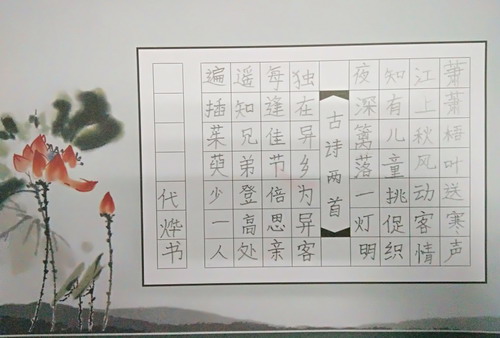 萧萧梧叶送寒声
江上秋风动客情
知有儿童挑促织
夜深篱落一灯明
古诗两首
独在异乡为异客
每逢佳节倍思亲
遥知兄弟登高处
遍插茱萸少一人
代烨书